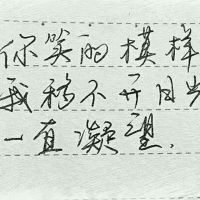 你笑的模样
我移不开目光
一直凝望.